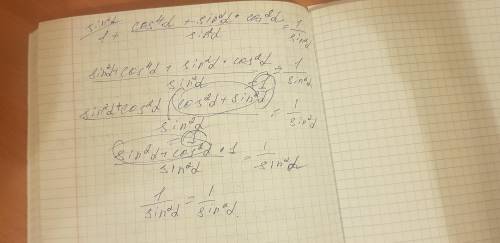 sin²α
1 + cos⁴α + sin²α · cos²α / sin²α = 1 / sin²α
sin²α + cos⁴α + sin²α · cos²α / sin²α = 1 / sin²α
1
sin²α + cos²α (cos²α + sin²α) / sin²α = 1 / sin²α
1
sin²α + cos²α · 1 / sin²α = 1 / sin²α
1 / sin²α = 1 / sin²α.